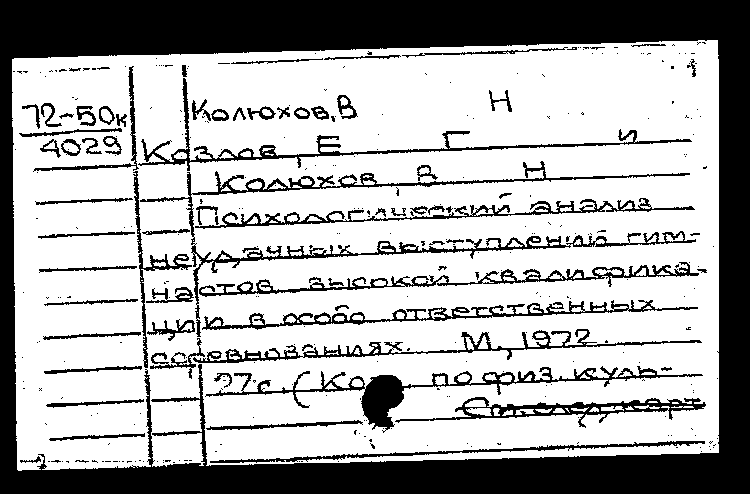 1
72-50к
4029
Колюхов, В Н
Козлов, Е Г и
Колюхов, В Н
Психологический анализ
неудачных выступлений гим-
настов высокой квалифика-
ции в особо ответственных
соревнованиях. М., 1972.
27с. (Ко по физ. куль-
См. след. карт